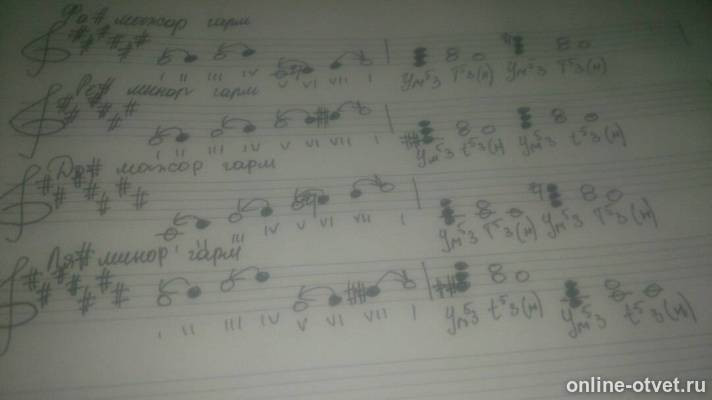 Фа# мажор гарм
I II III IV V VI VII I Ум53 Т53(н) Ум53 Т53(н)
Ре# минор гарм
I II III IV V VI VII I Ум53 t53(н) Ум53 t53(н)
До# мажор гарм
I II III IV V VI VII I Ум53 Т53(н) Ум53 Т53(н)
Ля# минор гарм
I II III IV V VI VII I Ум53 t53(н) Ум53 t53(н)
online-otvet.ru